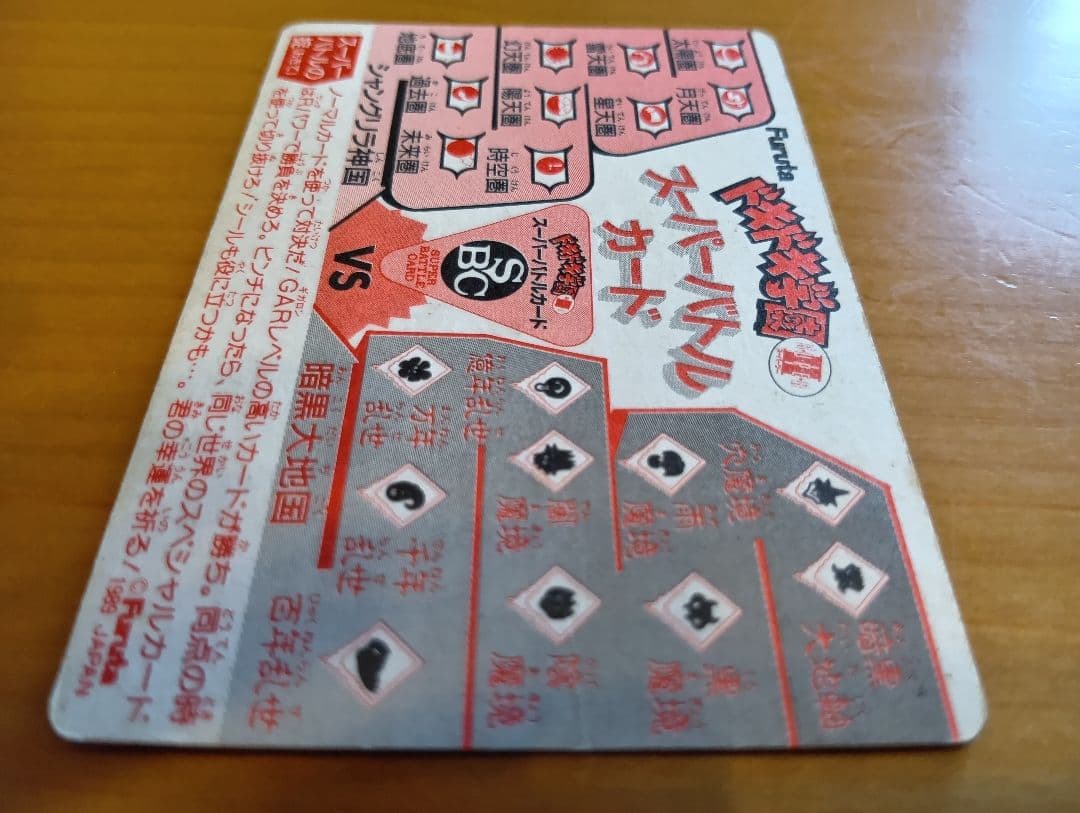 Furuta
ドキドキ学園
スーパーバトル
カード
太陽圏
月天圏
雷天圏
星天圏
幻天圏
陽天圏
時空圏
地底圏
過去圏
未来圏
シャングリラ神国
VS
ドキドキ学園
スーパーバトルカード
SBC
SUPER
BATTLE
CARD
暗黒大地国
億年乱世
万年乱世
千年乱世
百年乱世
穴魔境
雨魔境
闇魔境
黒魔境
暗黒
スーパー
バトルの
ノーマルカードを使って対決だ!GARレベルの高いカードが勝ち。同点の時
はRパワーで勝負を決めろ。ピンチになったら、同じ世界のスペシャルカード
を使って切り抜けろ!シールも役に立つかも…。君の幸運を祈る!
© Furuta
1989 JAPAN